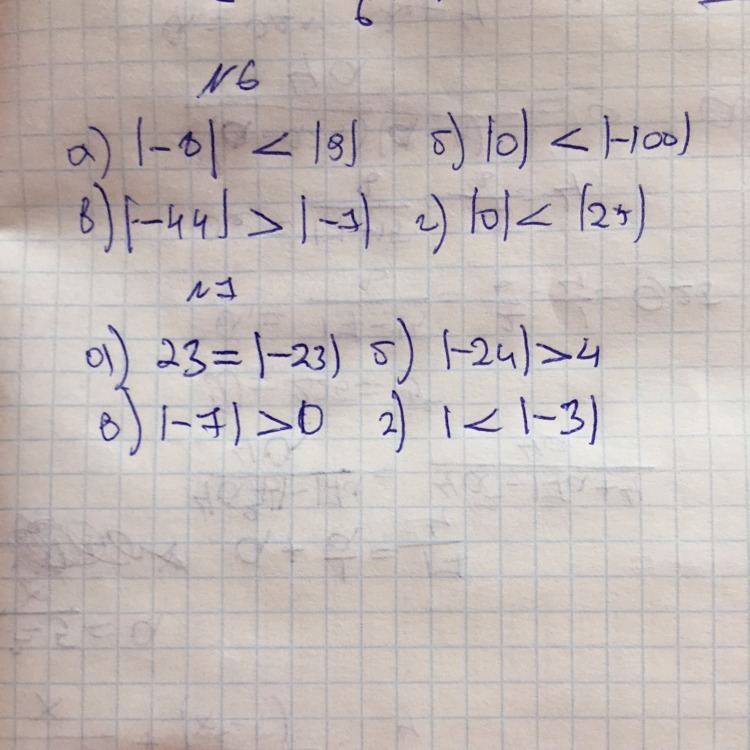 6
№6
а) |-8| < |9| б) |0| < |-100|
в) |-44| > |-7| г) |0| < |27|
№7
а) 23 = |-23| б) |-24| > 4
в) |-7| > 0 г) 1 < |-3|